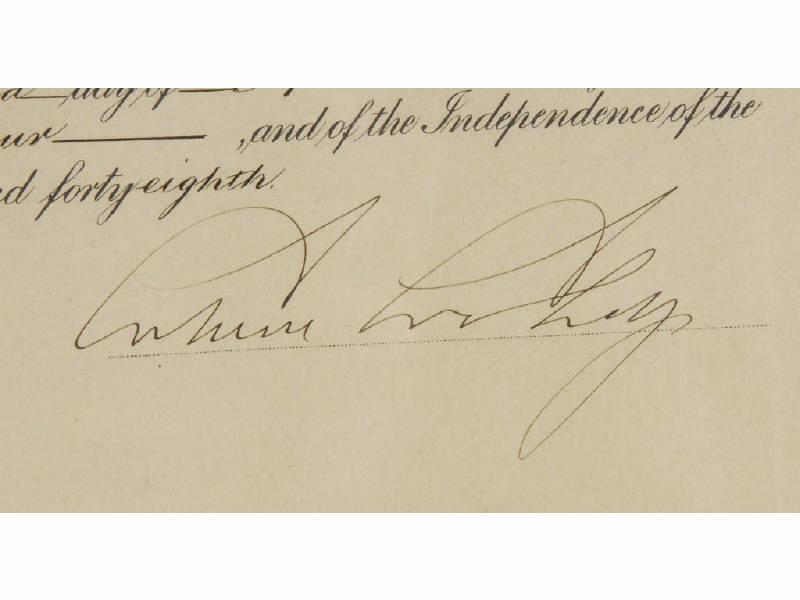 day of
ur ,and of the Independence of the
ed forty-eighth.
Calvin Coolidge